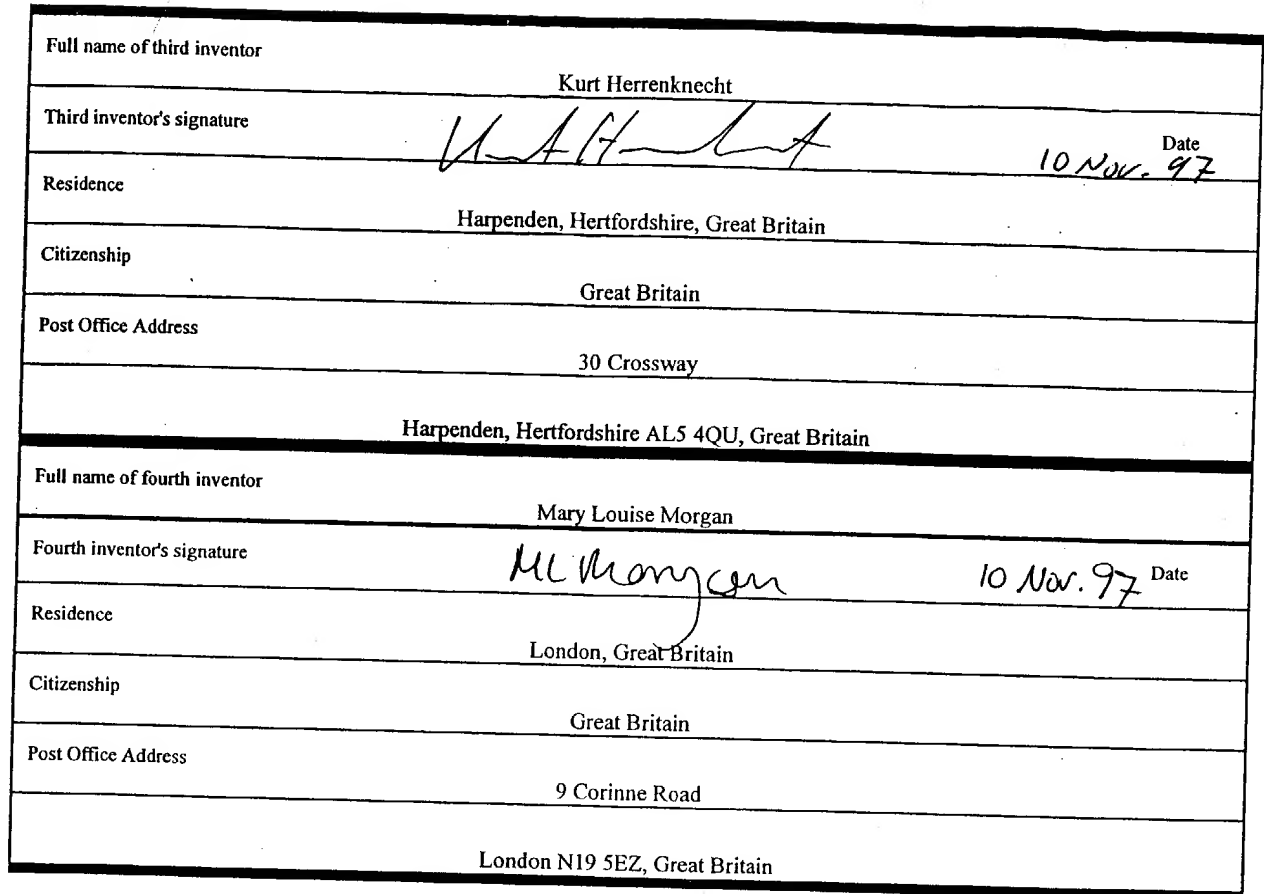 Full name of third inventor
Kurt Herrenknecht
Third inventor's signature
Kurt Herrenknecht
Date
10 Nov. 97
Residence
Harpenden, Hertfordshire, Great Britain
Citizenship
Great Britain
Post Office Address
30 Crossway
Harpenden, Hertfordshire AL5 4QU, Great Britain
Full name of fourth inventor
Mary Louise Morgan
Fourth inventor's signature
ML Morgan
10 Nov. 97 Date
Residence
London, Great Britain
Citizenship
Great Britain
Post Office Address
9 Corinne Road
London N19 5EZ, Great Britain